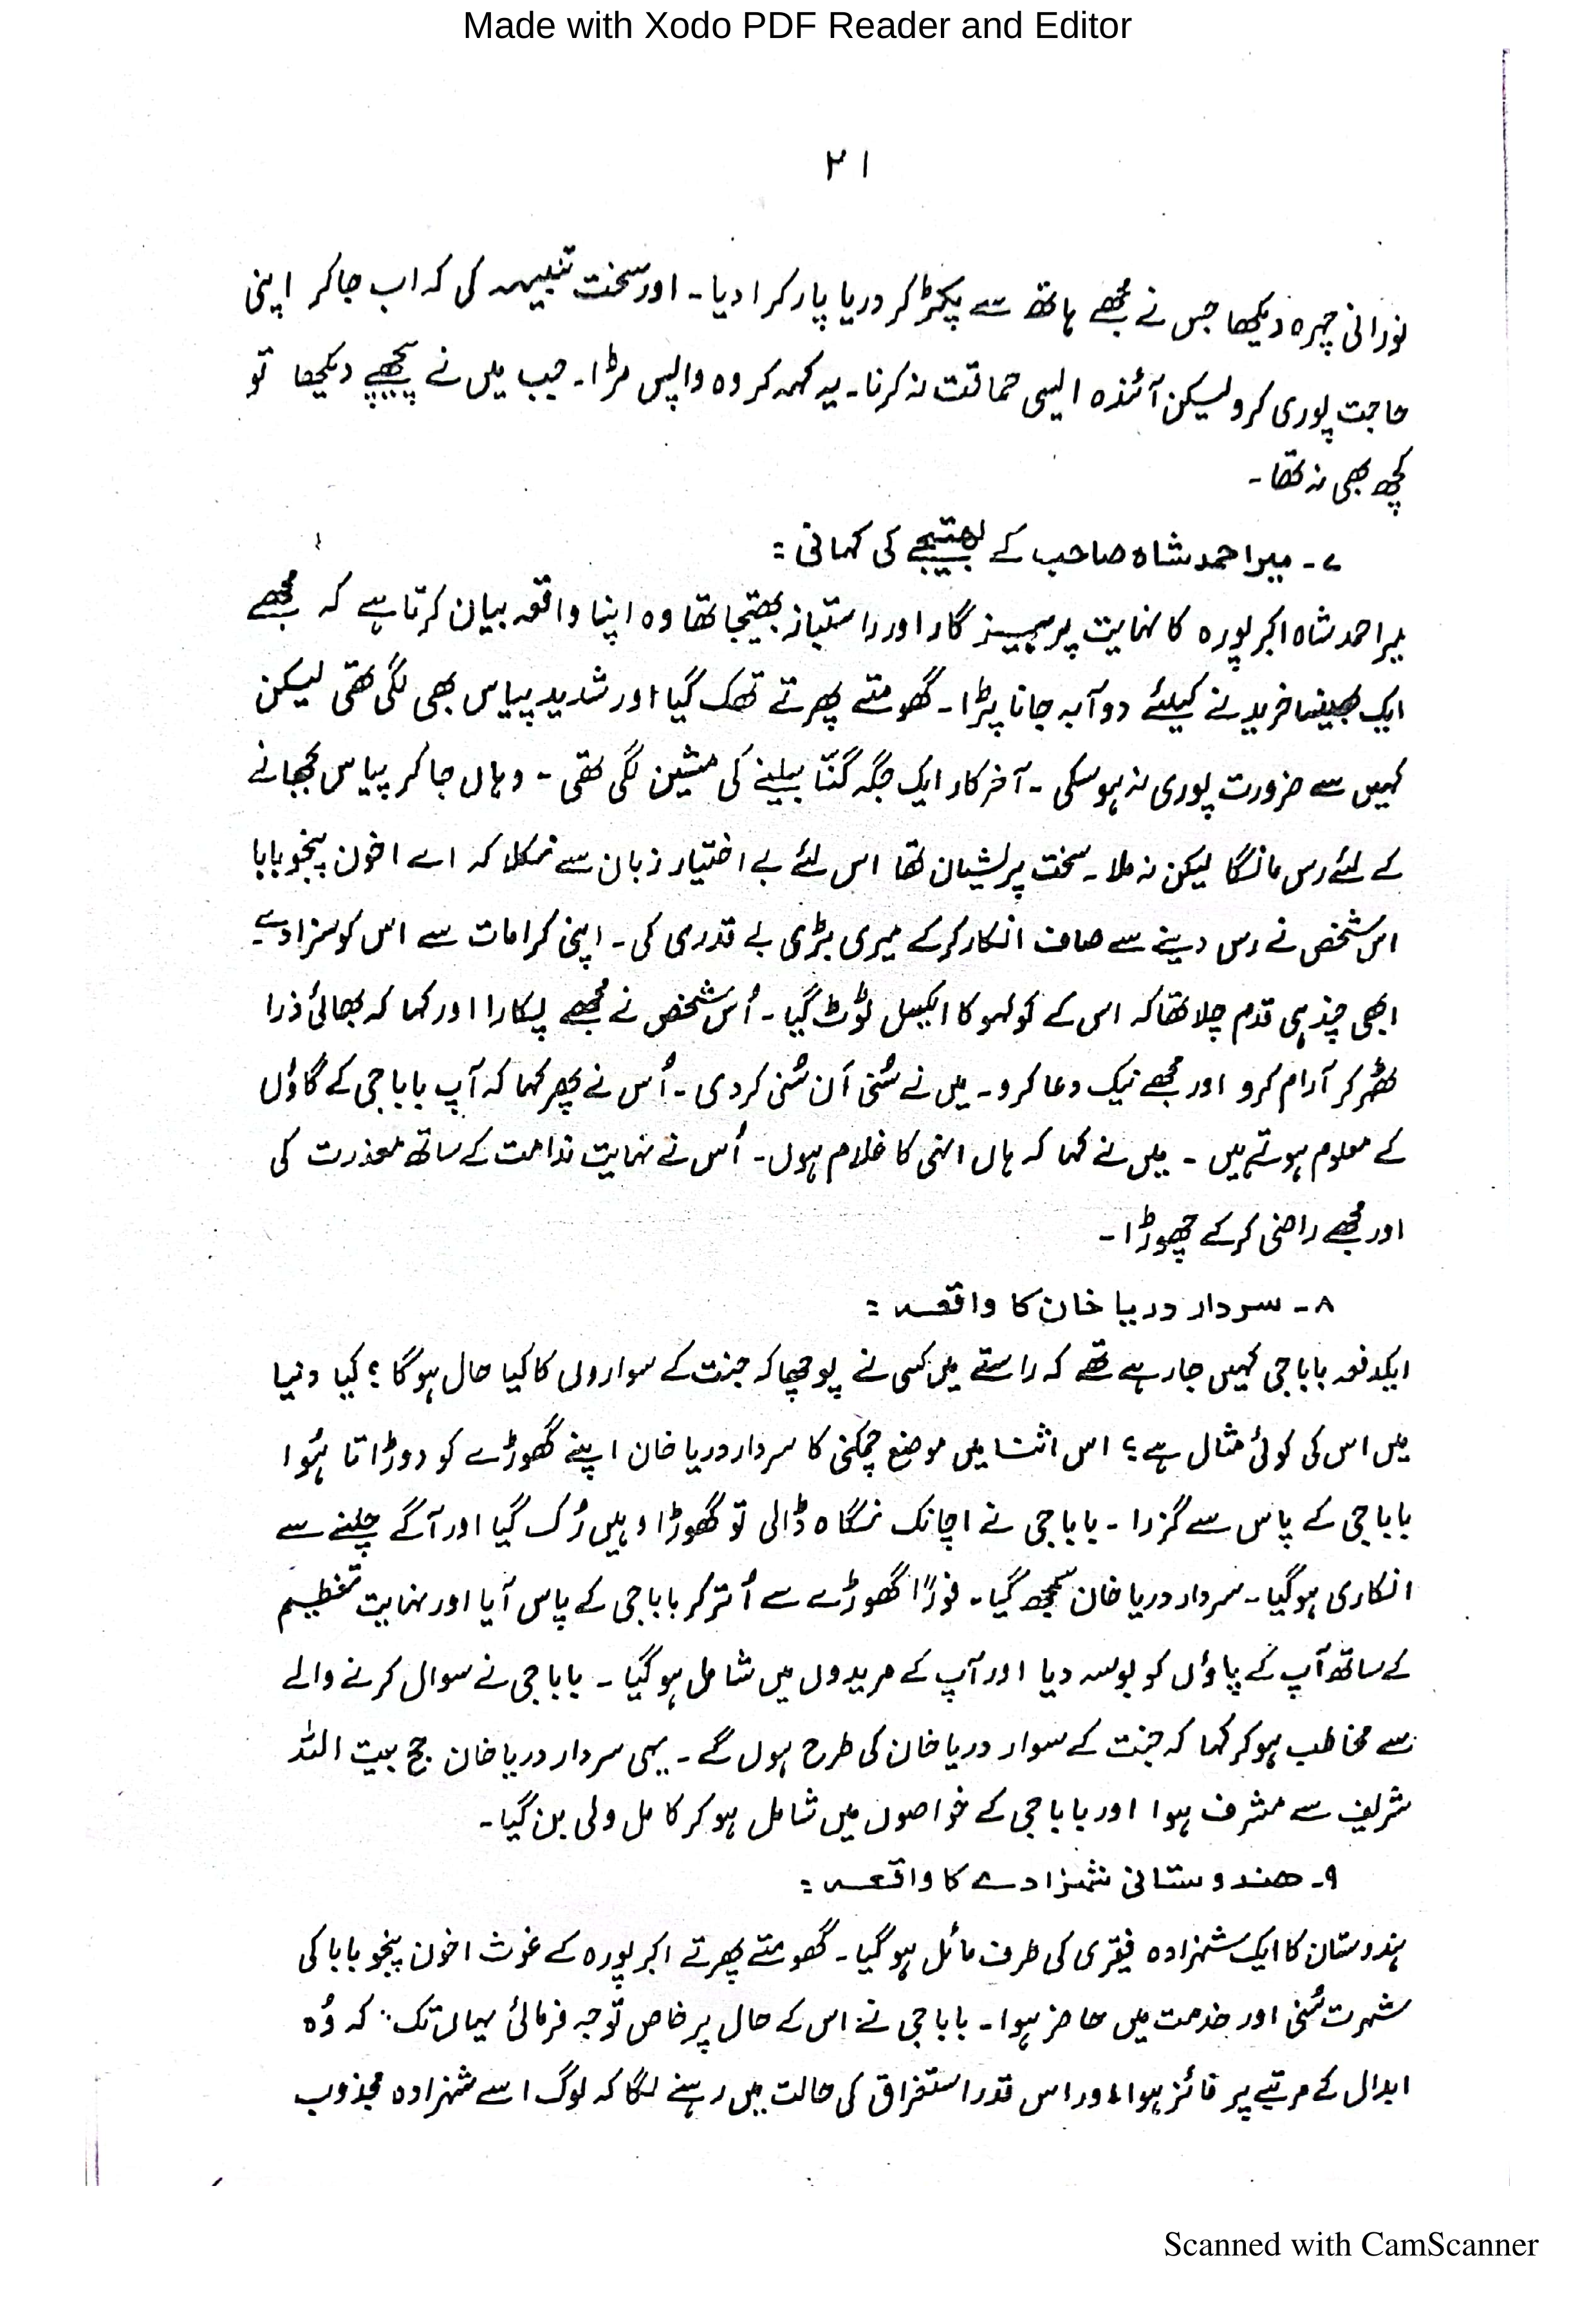 Made with Xodo PDF Reader and Editor
۲۱
نورانی چہرہ دیکھا جس نے مجھے ہاتھ سے پکڑ کر دریا پار کرا دیا۔ اور سخت تنبیہہ کی کہ اب جا کر اپنی
حاجت پوری کرو لیکن آئندہ ایسی حماقت نہ کرنا۔ یہ کہہ کر وہ واپس مڑا۔ جب میں نے پیچھے دیکھا تو
کچھ بھی نہ تھا۔
۷۔ میراحمد شاہ صاحب کے بھتیجے کی کہانی :
میراحمد شاہ اکبر پورہ کا نہایت پرہیز گار اور راستباز بھتیجا تھا وہ اپنا واقعہ بیان کرتا ہے کہ مجھے
ایک بھینسا خریدنے کیلئے دوآبہ جانا پڑا۔ گھومتے پھرتے تھک گیا اور شدید پیاس بھی لگی تھی لیکن
کہیں سے ضرورت پوری نہ ہو سکی۔ آخر کار ایک جگہ گنّا بیلنے کی مشین لگی تھی۔ وہاں جا کر پیاس بجھانے
کے لئے رس مانگا لیکن نہ ملا۔ سخت پریشان تھا اس لئے بے اختیار زبان سے نکلا کہ اے اخون پنجو بابا
اس شخص نے رس دینے سے صاف انکار کر کے میری بڑی بے قدری کی۔ اپنی کرامات سے اس کو سزا دے۔
ابھی چند ہی قدم چلا تھا کہ اس کے کولہو کا ایکسل ٹوٹ گیا۔ اُس شخص نے مجھے پکارا اور کہا کہ بھائی ذرا
ٹھہر کر آرام کرو اور مجھے نیک دعا کرو۔ میں نے سُنی اَن سُنی کر دی۔ اُس نے پھر کہا کہ آپ بابا جی کے گاؤں
کے معلوم ہوتے ہیں۔ میں نے کہا کہ ہاں انہی کا غلام ہوں۔ اُس نے نہایت ندامت کے ساتھ معذرت کی
اور مجھے راضی کر کے چھوڑا۔
۸۔ سردار دریا خان کا واقعہ :
ایکدفعہ بابا جی کہیں جا رہے تھے کہ راستے میں کسی نے پوچھا کہ جنت کے سواروں کا کیا حال ہو گا؟ کیا دنیا
میں اس کی کوئی مثال ہے؟ اس اثنا میں موضع چمکنی کا سردار دریا خان اپنے گھوڑے کو دوڑاتا ہُوا
بابا جی کے پاس سے گزرا۔ بابا جی نے اچانک نگاہ ڈالی تو گھوڑا وہیں رُک گیا اور آگے چلنے سے
انکاری ہو گیا۔ سردار دریا خان سمجھ گیا۔ فوراً گھوڑے سے اُتر کر بابا جی کے پاس آیا اور نہایت تعظیم
کے ساتھ آپ کے پاؤں کو بوسہ دیا اور آپ کے مریدوں میں شامل ہو گیا۔ بابا جی نے سوال کرنے والے
سے مخاطب ہو کر کہا کہ جنت کے سوار دریا خان کی طرح ہوں گے۔ یہی سردار دریا خان حج بیت اللہ
شریف سے مشرف ہوا اور بابا جی کے خواصوں میں شامل ہو کر کامل ولی بن گیا۔
۹۔ ہندوستانی شہزادے کا واقعہ :
ہندوستان کا ایک شہزادہ فیقری کی طرف مائل ہو گیا۔ گھومتے پھرتے اکبر پورہ کے غوث اخون پنجو بابا کی
شہرت سُنی اور خدمت میں حاضر ہوا۔ بابا جی نے اس کے حال پر خاص توجہ فرمائی یہاں تک کہ وُہ
ابدال کے مرتبے پر فائز ہوا، اور اس قدر استغراق کی حالت میں رہنے لگا کہ لوگ اسے شہزادہ مجذوب
Scanned with CamScanner